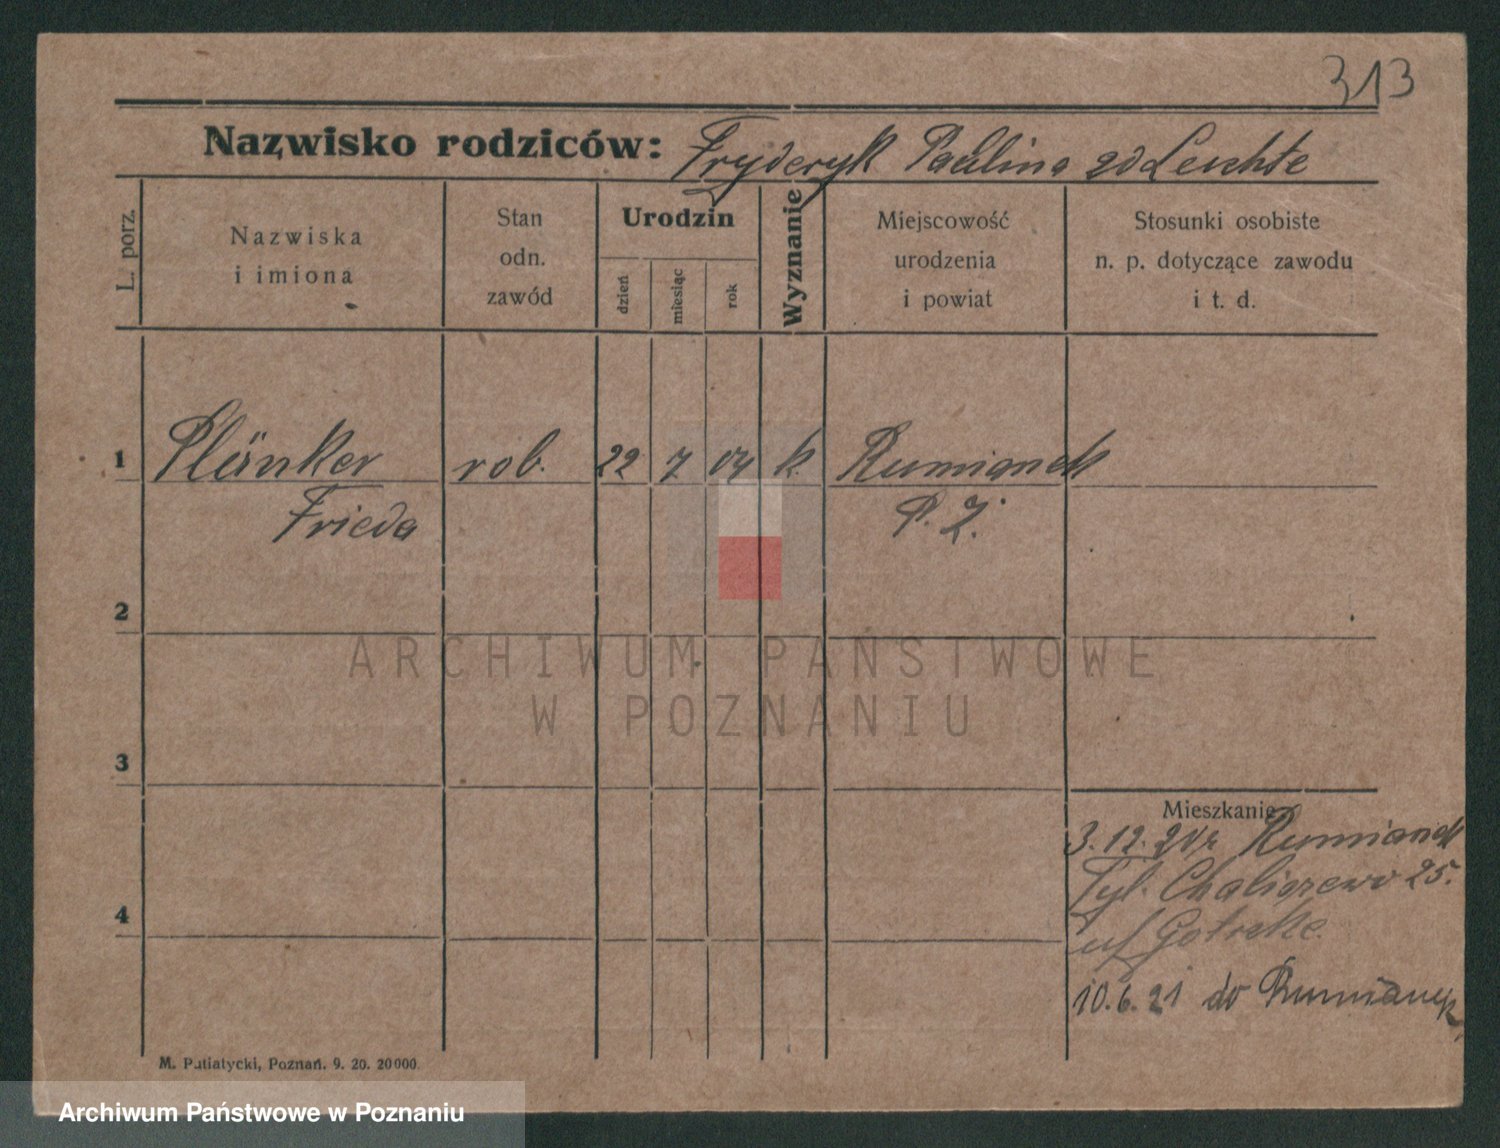 313
Nazwisko rodziców: Fryderyk Paulina zd Leichte
L. porz.
Nazwiska
i imiona
Stan
odn.
zawód
Urodzin
dzień
miesiąc
rok
Wyznanie
Miejscowość
urodzenia
i powiat
Stosunki osobiste
n. p. dotyczące zawodu
i t. d.
1 Plänker rob. 22 7 04 k Rumianek
Frieda P. Z.
2
ARCHIWUM PAŃSTWOWE
W POZNANIU
3
Mieszkanie
3.12.20r Rumianek
4
25.
10.6.21 do Rumianek
M. Putiatycki, Poznań. 9. 20. 20000.
Archiwum Państwowe w Poznaniu